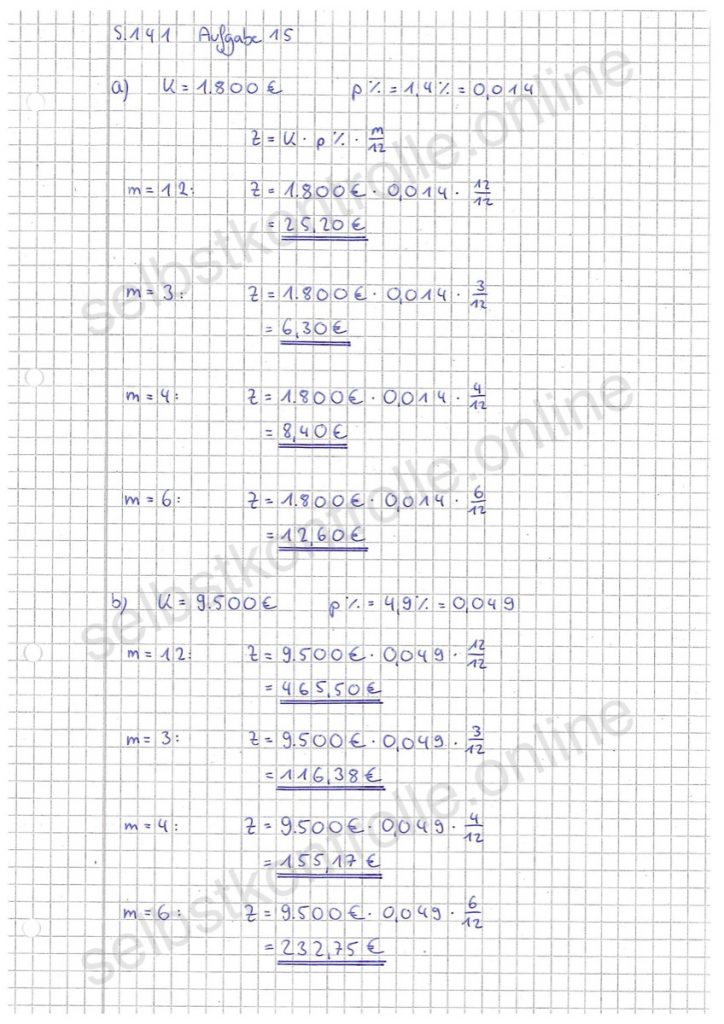 S.141 Aufgabe 15
a) K = 1.800 € p% = 1,4% = 0,014
Z = K · p% · m/12
m = 12: Z = 1.800 € · 0,014 · 12/12
= 25,20 €
m = 3: Z = 1.800 € · 0,014 · 3/12
= 6,30 €
m = 4: Z = 1.800 € · 0,014 · 4/12
= 8,40 €
m = 6: Z = 1.800 € · 0,014 · 6/12
= 12,60 €
b) K = 9.500 € p% = 4,9% = 0,049
m = 12: Z = 9.500 € · 0,049 · 12/12
= 465,50 €
m = 3: Z = 9.500 € · 0,049 · 3/12
= 116,38 €
m = 4: Z = 9.500 € · 0,049 · 4/12
= 155,17 €
m = 6: Z = 9.500 € · 0,049 · 6/12
= 232,75 €
selbstkontrolle.online
selbstkontrolle.online
selbstkontrolle.online